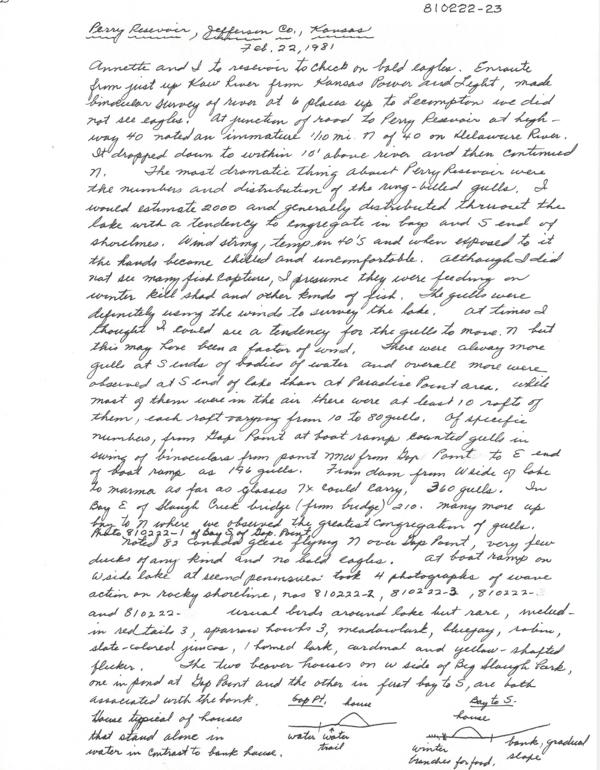 810222-23
Perry Resevoir, Jefferson Co., Kansas
Feb. 22, 1981
Annette and I to resevoir to check on bald eagles. Enroute
from just up Kaw River from Kansas Power and Light, made
binocular survey of river at 6 places up to Lecompton we did
not see eagles. At junction of road to Perry Resevoir at high-
way 40 noted an immature 1/10 mi. N of 40 on Delaware River.
It dropped down to within 10' above river and then continued
N. The most dramatic thing about Perry Resevoir were
the numbers and distribution of the ring-billed gulls. I
would estimate 2000 and generally distributed thruout the
lake with a tendency to congregate in bays and S end of
shorelines. Wind strong, temp in 40's and when exposed to it
the hands become chilled and uncomfortable. Although I did
not see many fish captures, I presume they were feeding on
winter kill shad and other kinds of fish. The gulls were
definitely using the winds to survey the lake. At times I
thought I could see a tendency for the gulls to move N but
this may have been a factor of wind. There were alway more
gulls at S ends of bodies of water and overall more were
observed at S end of lake than at Paradise Point area. While
most of them were in the air there were at least 10 rafts of
them, each raft varying from 10 to 80 gulls. Of specific
numbers, from Gap Point at boat ramp counted gulls in
swing of binoculars from point NNW from Gap Point to E end
of boat ramp as 196 gulls. From dam from W side of lake
to marina as far as glasses 7x could carry, 360 gulls. In
Bay E of Slough Creek bridge (from bridge) 210. Many more up
bay to N where we observed the greatest congregation of gulls.
Photo 810222-1 of Bay S of Gap Point
Noted 82 Canada geese flying N over Gap Point, very few
ducks of any kind and no bald eagles. At boat ramp on
W side lake at second peninsula took 4 photographs of wave
action on rocky shoreline, nos 810222-2, 810222-3, 810222-
and 810222- usual birds around lake but rare, includ-
in red tails 3, sparrow hawks 3, meadowlark, bluejay, robin,
slate-colored juncos, 1 horned lark, cardinal and yellow-shafted
flicker. The two beaver houses on W side of Big Slough Park,
one in pond at Gap Point and the other in first bay to S, are both
associated with the bank.
House typical of houses
that stand alone in
water in contrast to bank house.
Gap Pt. house
water water
trail
Bay to S.
house
winter
branches for food.
bank, gradual
slope